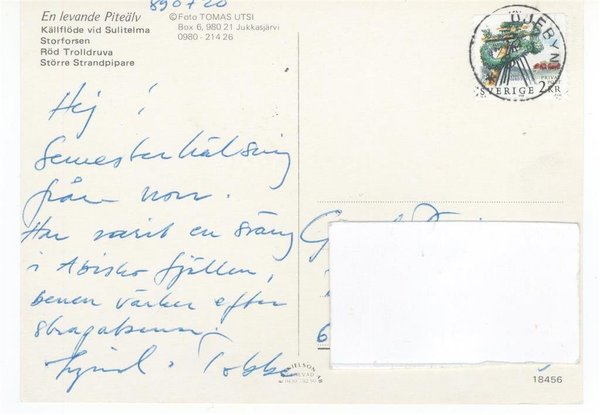 890720
En levande Piteälv
Källflöde vid Sulitelma
Storforsen
Röd Trolldruva
Större Strandpipare
©Foto TOMAS UTSI
Box 6, 980 21 Jukkasjärvi
0980 - 214 26
ÖJEBYN
PRIVAT
SVERIGE 2 KR
Hej!
Semesterhälsning
från norr.
Har varit en sväng
i Abisko fjällen,
benen värker efter
strapatserna.
Tobbe
6
18456